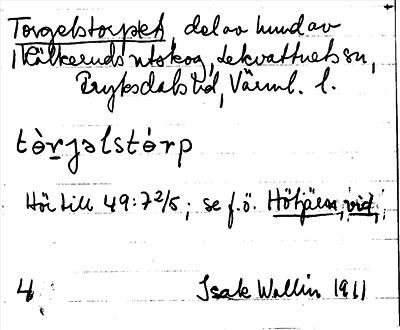 Torgelstorpet, del av hund av
Kälkeruds utskog, Lekvattnets sn,
Fryksdals hd, Värml. l.
tòrjəlstórp
Hör till 49:7 2/5; se f.ö. Höhjälen, vid,
4 Isak Wallin 1911